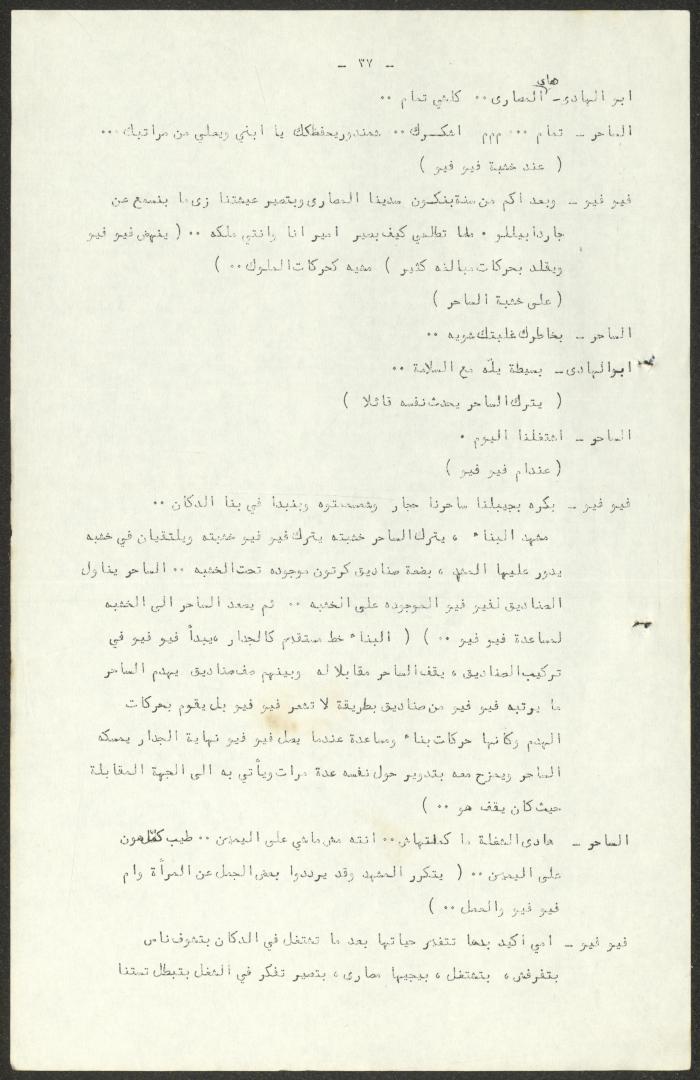 - ٣٧ -
ابو الهادى - هاي المصارى ٠٠ كاشي تمام ٠٠
الساحر - تمام ٠٠٠ ممم اشكرك ٠٠ شمندور يحفظك يا ابني ويعلي من مراتبك ٠٠٠
( عند خشبة فيو فيو )
فيو فيو - وبعد اكم من سنة بنكون سدينا المصارى وبتصير عيشتنا زى ما بنسمع عن
جاردا بيللو ٠ هلا تطلعي كيف بصير امير انا وانتي ملكه ٠٠ ( ينهض فيو فيو
ويقلد بحركات مبالغه كثير ) مشيه كحركات الملوك ٠٠ )
( على خشبة الساحر )
الساحر - بخاطرك غلبتك شويه ٠٠
ابو الهادى - بسيطة يلّه مع السلامة ٠٠
( يترك الساحر يحدث نفسه قائلا )
الساحر - اشتغلنا اليوم ٠
( عند ام فيو فيو )
فيو فيو - بكره بجيبلنا ساحرنا حجار وشمستوه وبنبدا في بنا الدكان ٠٠
مشهد البناء ، يترك الساحر خشبته يترك فيو فيو خشبته ويلتقيان في خشبه
يدور عليها المشهد ، بضعة صناديق كرتون موجوده تحت الخشبه ٠٠ الساحر يناول
الصناديق لفيو فيو الموجوده على الخشبه ٠٠ ثم يصعد الساحر الى الخشبه
لمساعدة فيو فيو ٠٠ ) ( البناء خط مستقيم كالجدار ، يبدأ فيو فيو في
تركيب الصناديق ، يقف الساحر مقابلا له وبينهم صف صناديق يهدم الساحر
ما يرتبه فيو فيو من صناديق بطريقة لا تشعر فيو فيو بل يقوم بحركات
الهدم وكأنها حركات بناء ومساعدة عندما يصل فيو فيو نهاية الجدار يمسكه
الساحر ويمزح معه بتدوير حول نفسه عدة مرات ويأتي به الى الجهة المقابلة
حيث كان يقف هو ٠٠ )
الساحر - هادى الشغلة ما كملتهاش ٠٠ انته مش ماشي على اليمين ٠٠ طيب كمل هون
على اليمين ٠٠ ( يتكرر المشهد وقد يرددوا بعض الجمل عن المرأة وام
فيو فيو والحمل ٠٠ )
فيو فيو - امي اكيد بدها تتغير حياتها بعد ما تشتغل في الدكان بتشوف ناس
بتفرفش ، بتشتغل ، بيجيها مصارى ، بتصير تفكر في الشغل بتبطل تستنا